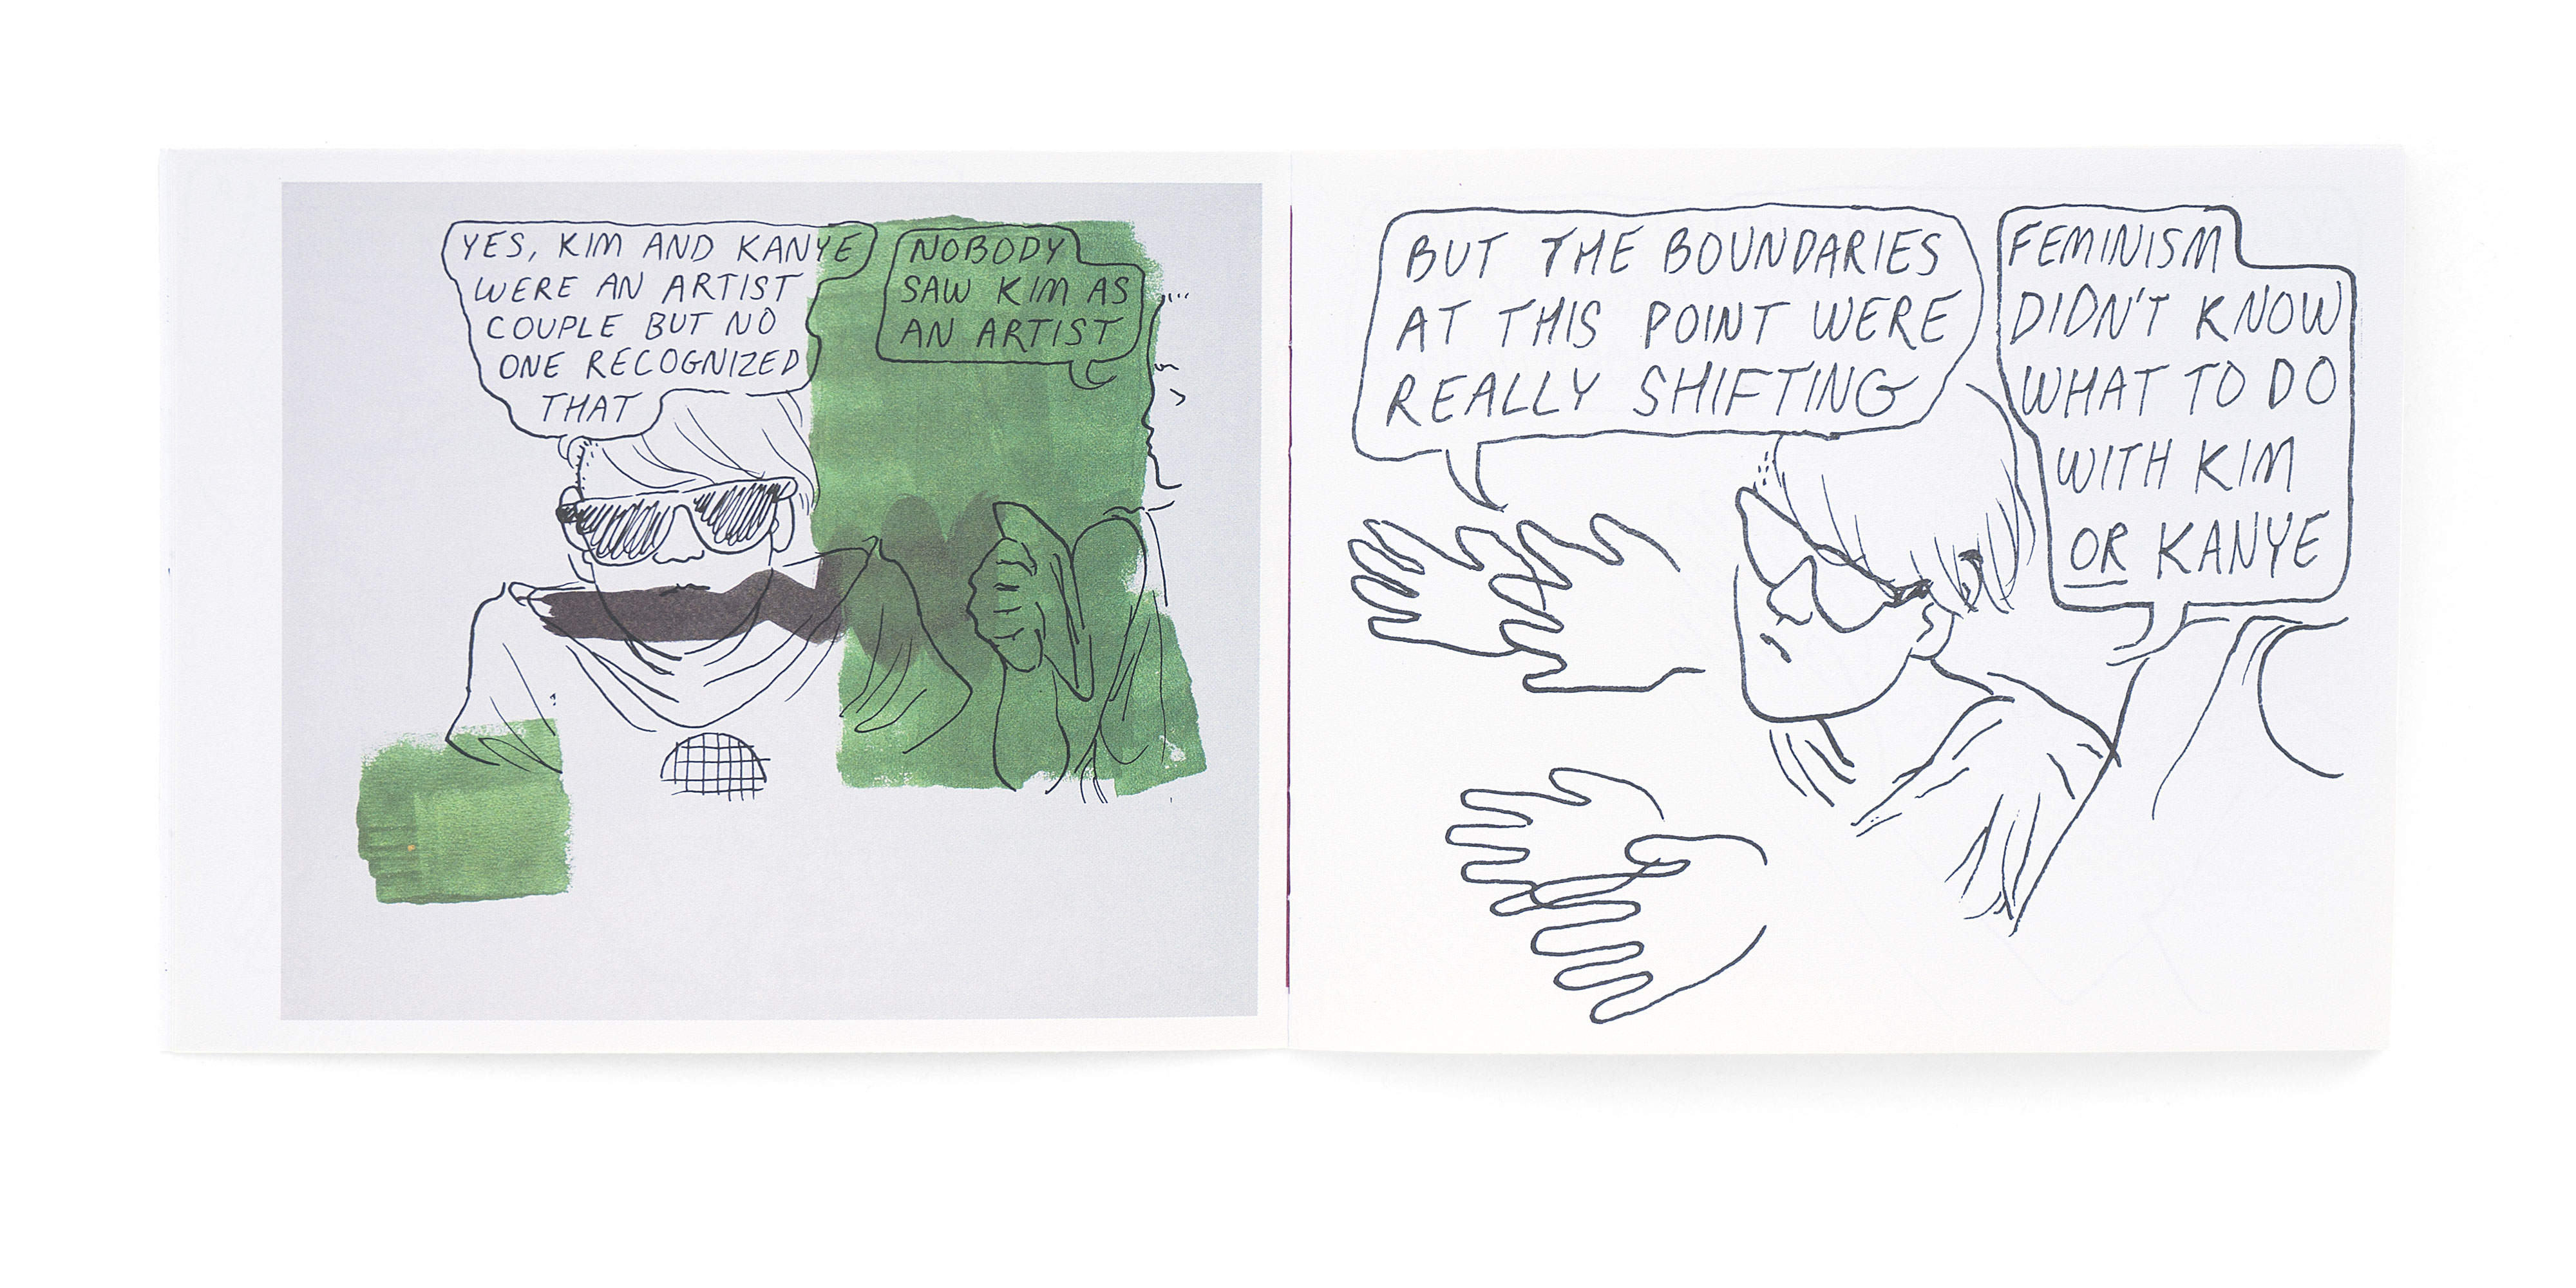 YES, KIM AND KANYE
WERE AN ARTIST
COUPLE BUT NO
ONE RECOGNIZED
THAT
NOBODY
SAW KIM AS
AN ARTIST
BUT THE BOUNDARIES
AT THIS POINT WERE
REALLY SHIFTING
FEMINISM
DIDN'T KNOW
WHAT TO DO
WITH KIM
OR KANYE